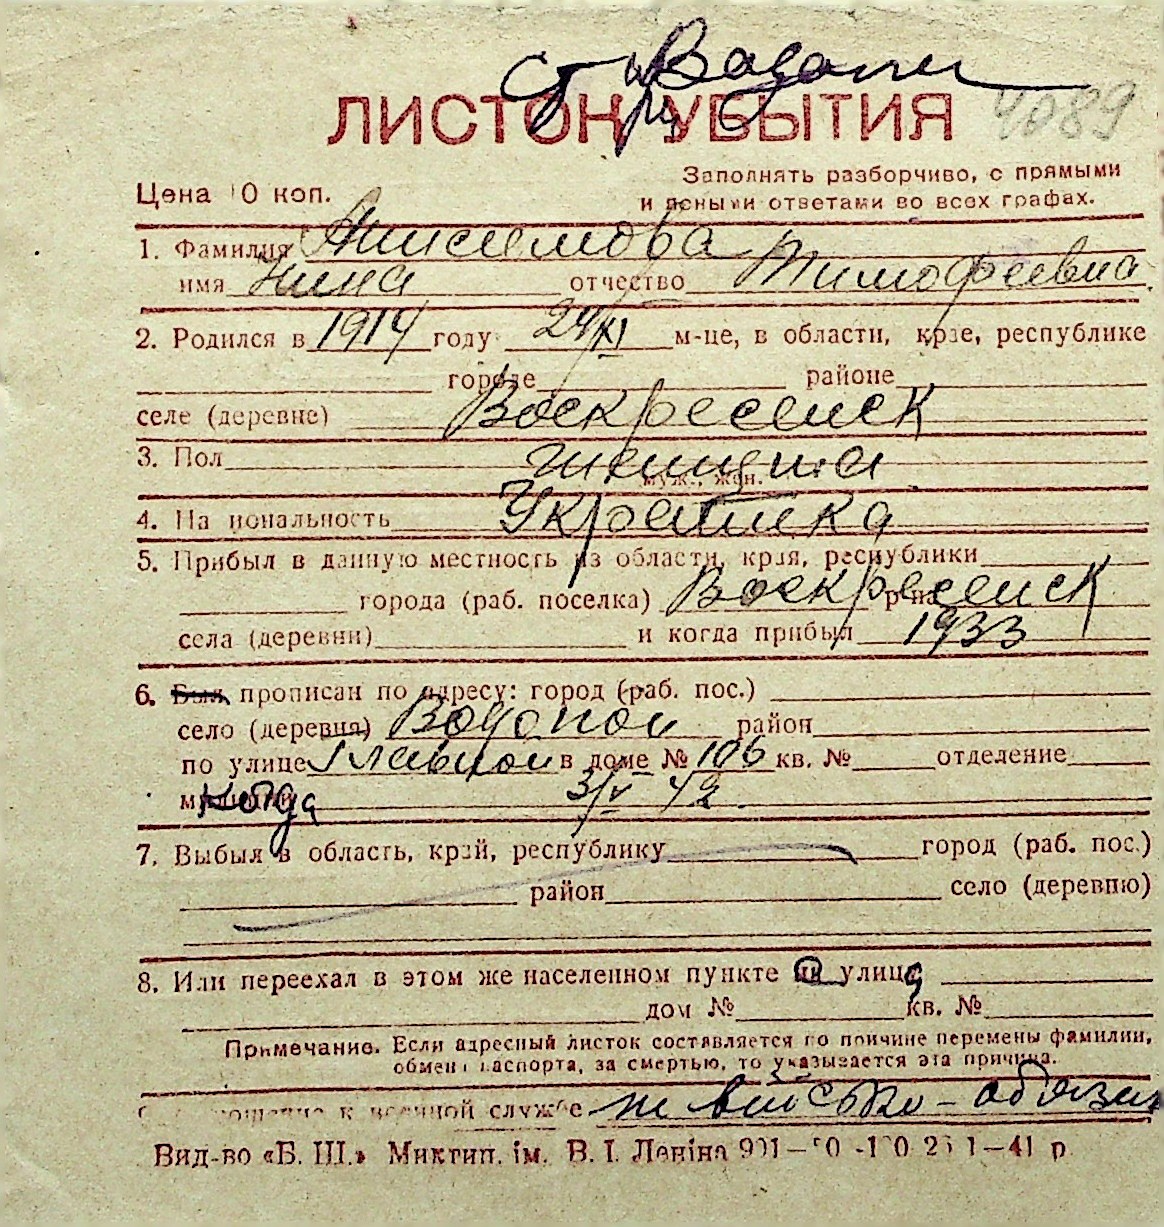 Водопой
ЛИСТОК УБЫТИЯ 4089
Заполнять разборчиво, с прямыми
Цена 10 коп. и ясными ответами во всех графах.
1. Фамилия Анисимова
имя Нина отчество Тимофеевна
2. Родился в 1914 году 24/XI м-це, в области, крае, республике
городе районе
селе (деревне) Воскресенск
3. Пол женщина
муж., жен.
4. Национальность Украинка
5. Прибыл в данную местность из области, края, республики
города (раб. поселка) Воскресенск р-на
села (деревни) и когда прибыл 1933
6. Был прописан по адресу: город (раб. пос.)
село (деревня) Водопой район
по улице Главной в доме № 106 кв. № отделение
милиции когда 3/V 42
7. Выбыл в область, край, республику город (раб. пос.)
район село (деревню)
8. Или переехал в этом же населенном пункте на улицу
дом № кв. №
Примечание. Если адресный листок составляется по причине перемены фамилии,
обмена паспорта, за смертью, то указывается эта причина.
к военной службе не
Вид-во «Б. Ш.» Миктип. ім. В. І. Леніна 41 р.